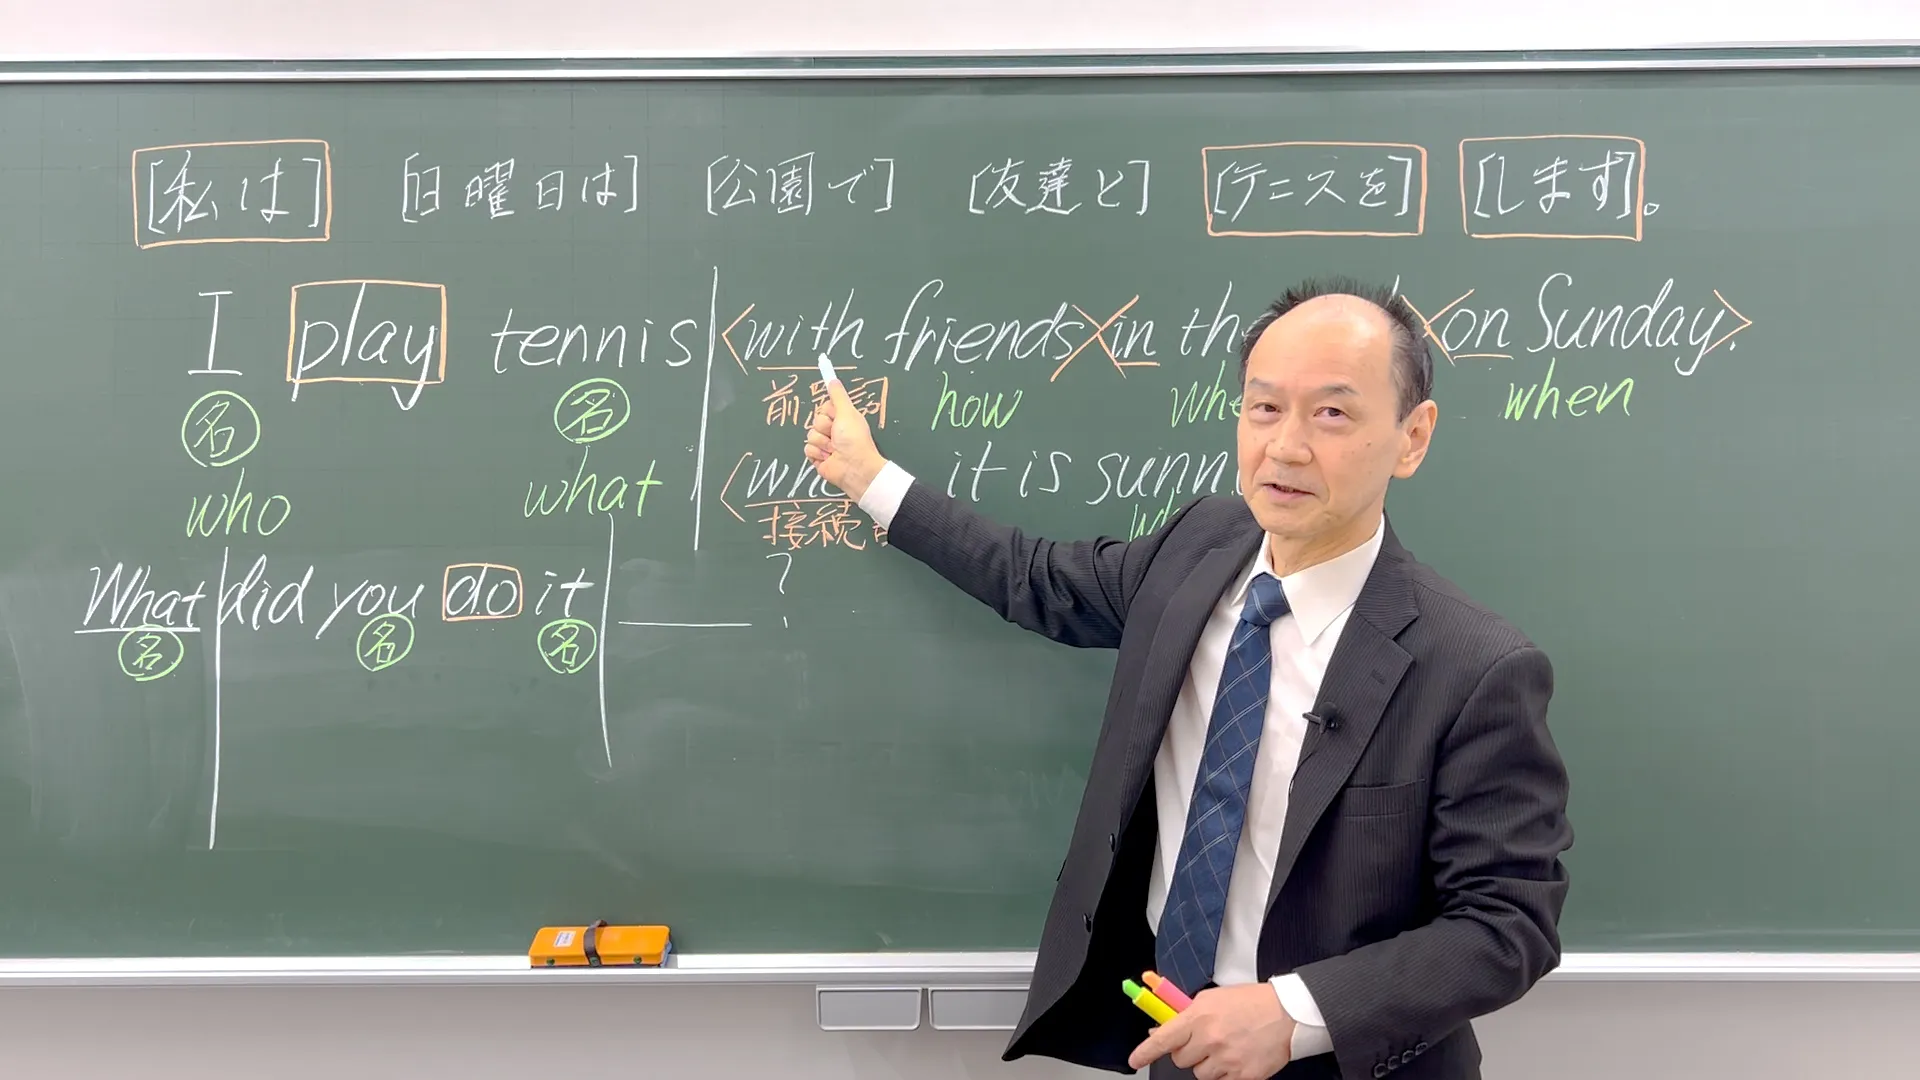 [私は] [日曜日は] [公園で] [友達と] [テニスを] [します]。
I play tennis <with friends> <in on Sunday>.
名 名 前置詞 how when
who what it is
接続
What did you do it ?
名 名 名